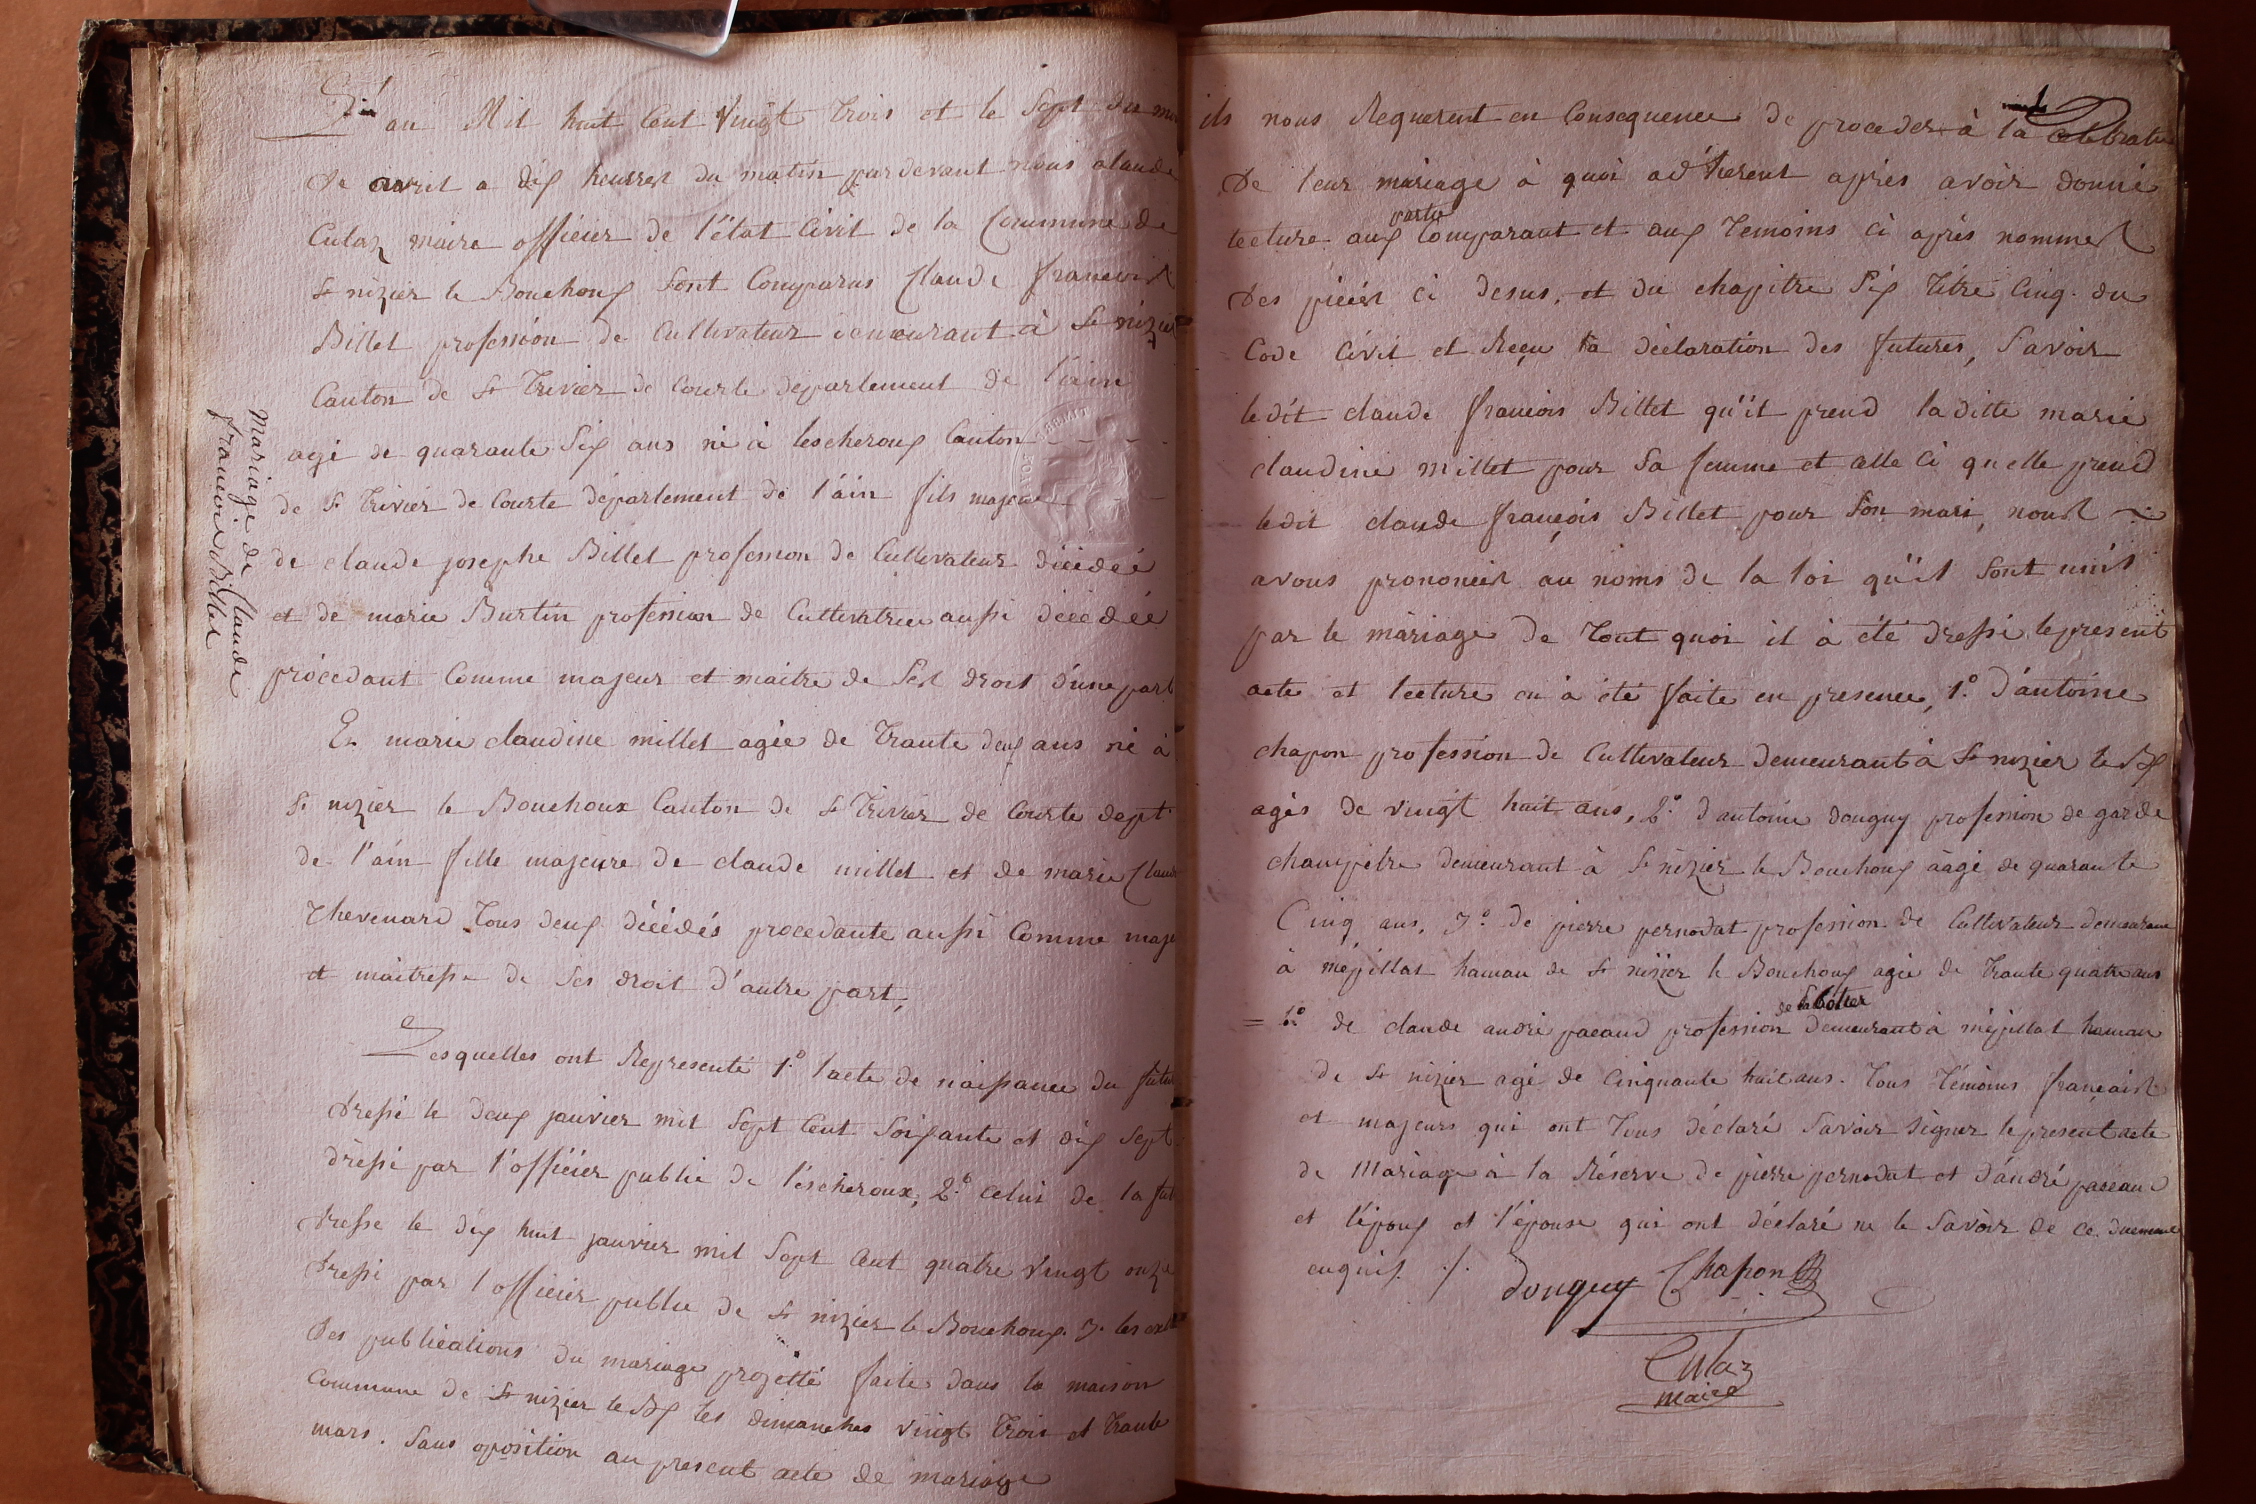 L'an Mil huit Cent Vingt trois et le Sept du mois
de avril a dix heurres du matin pardevant nous claude
Culaz maire officier de l'état Civil de la Commune de
St nizier le Bouchoux Sont Comparus Claude francois
Billet profession de Cultivateur demeurant à St nizier
Canton de St Trivier de Courte departement de l'ain
agé de quarante Six ans né à lescheroux Canton
de St Trivier de Courte département de l'ain fils majeur
de claude josephe Billet profession de Cultivateur décédeé
et de marie Burtin profession de Cultivatrice aussi décédeé
procedant Comme majeur et maitre de Ses droit d'une part
Et marie claudine millet agée de trante deux ans né à
St nizier le Bouchoux Canton de St Trivier de Courte dept
de l'ain fille majeure de claude millet et de marie Claud
Thevenard Tous deux décédés procedante aussi Comme maje
et maitresse de Ses droit d'autre part,
Lesquelles ont Representé 1° lacte de naissance du futu
dressé le deux janvier mil Sept Cent Soixante et dix Sept
dressé par l'officier public de l'escheroux, 2° celui de la fut
dresse le dix huit janvier mil Sept Cent quatre Vingt onze
dressé par l officier public de St nizier le Bouchoux 3. les
des publications du mariage projetté faite dans la maison
Commune de St nizier le Bx les dimanches vingt trois et trante
mars. Sans oposition au present acte de mariage
Mariage de Claude
francois Billet
ils nous Requerent en Consequence de proceder à la Celebration
de leur mariage à quoi adherent aprés avoir donné
partie
lecture aux Comparant et aux Temoins ci aprés nommes
des piéces ci desus, et du chapitre Six Titre Cinq du
Code Civil et Reçu la déclaration des futures, Savoir
ledit claude francois Billet qu'il prend laditte marie
claudine millet pour Sa femme et celle ci quelle prend
ledit claude françois Billet pour Son mari, nous
avons prononcés au noms de la loi qu'il Sont unis
par le mariage de Tout quoi il à été dressé le present
acte et lecture en à été faite en presence, 1° d'antoine
chapon profession de Cultivateur demeurant à St nizier le Bx
agés de vingt huit ans, 2° d antoine douguy profession de garde
champètre demeurant à St nizier le Bouchoux aagé de quarante
Cinq ans, 3° de pierre pernodat profession de Cultivateur demeurant
à mépillat hamau de St nizier le Bouchoux agée de Trante quatre ans
de Sabotier
= 4° de claude andré pacaud profession demeurant à mépillat hamau
de St nizier agé de Cinquante huit ans. Tous Témoins français
et majeurs qui ont Tous déclaré Savoir signer le present acte
de Mariage à la Réserve de pierre pernodat et d'andré pacaud
et l'époux et l'épouse qui ont déclaré ne le Savoir de ce duement
enquis ./.
Douguy Chapon
Culaz
maire